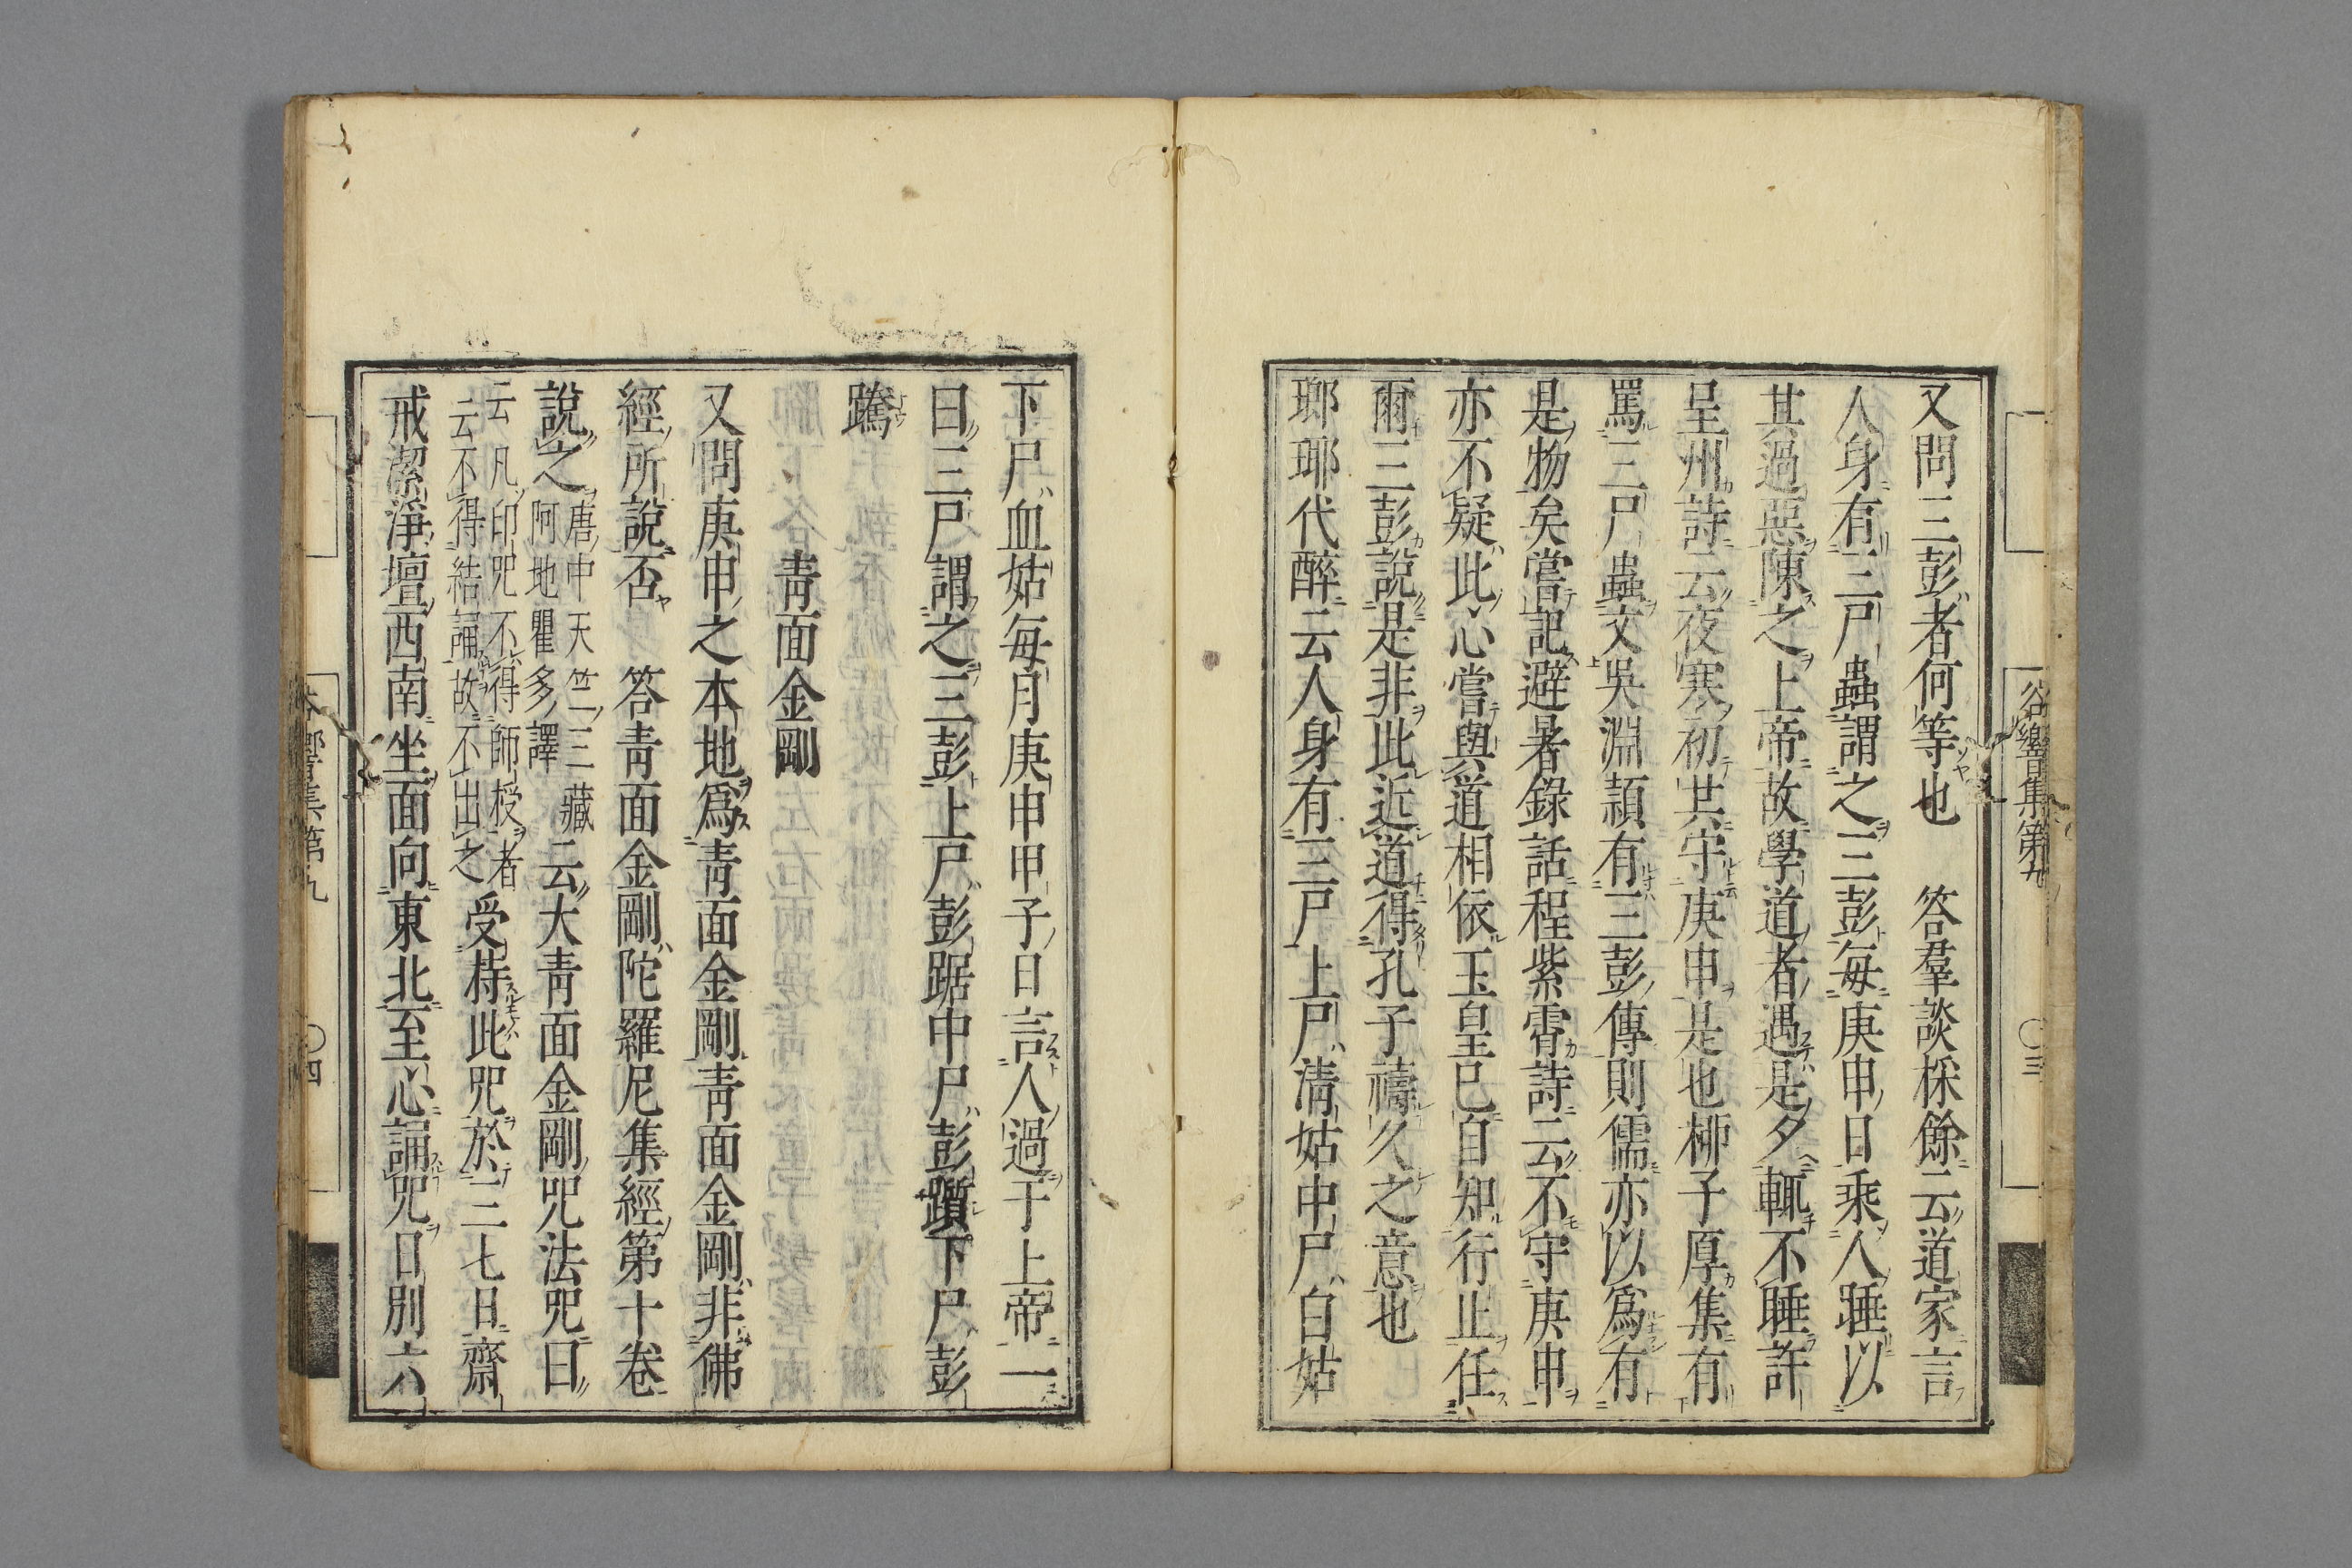 又問三彭者何等也　答羣談採餘云道家言
人身有三尸蟲謂之三彭每庚申日乘人睡以
其過惡陳之上帝故學道者遇是夕輒不睡許
呈州詩云夜寒初共守庚申是也柳子厚集有
罵三尸蟲文吳淵頴有三彭傳則儒亦以爲有
是物矣嘗記避暑錄話程紫霄詩云不守庚申
亦不疑此心嘗與道相依玉皇已自知行止任
爾三彭說是非此近道得孔子禱久之意也
瑯琊代醉云人身有三尸上尸清姑中尸白姑
谷響集第九　〇三
下尸血姑每月庚申甲子日言人過于上帝一
曰三尸謂之三彭上尸彭踞中尸彭躓下尸彭
蹻
青面金剛
又問庚申之本地爲青面金剛青面金剛非佛
經所說否　答青面金剛陀羅尼集經第十卷
說之唐中天竺三藏
阿地瞿多譯云大青面金剛咒法咒曰
云凡印咒不得師授者
云不得結誦故不出之受持此咒於三七日齋
戒潔淨壇西南坐面向東北至心誦咒日別六
谷響集第九　〇四